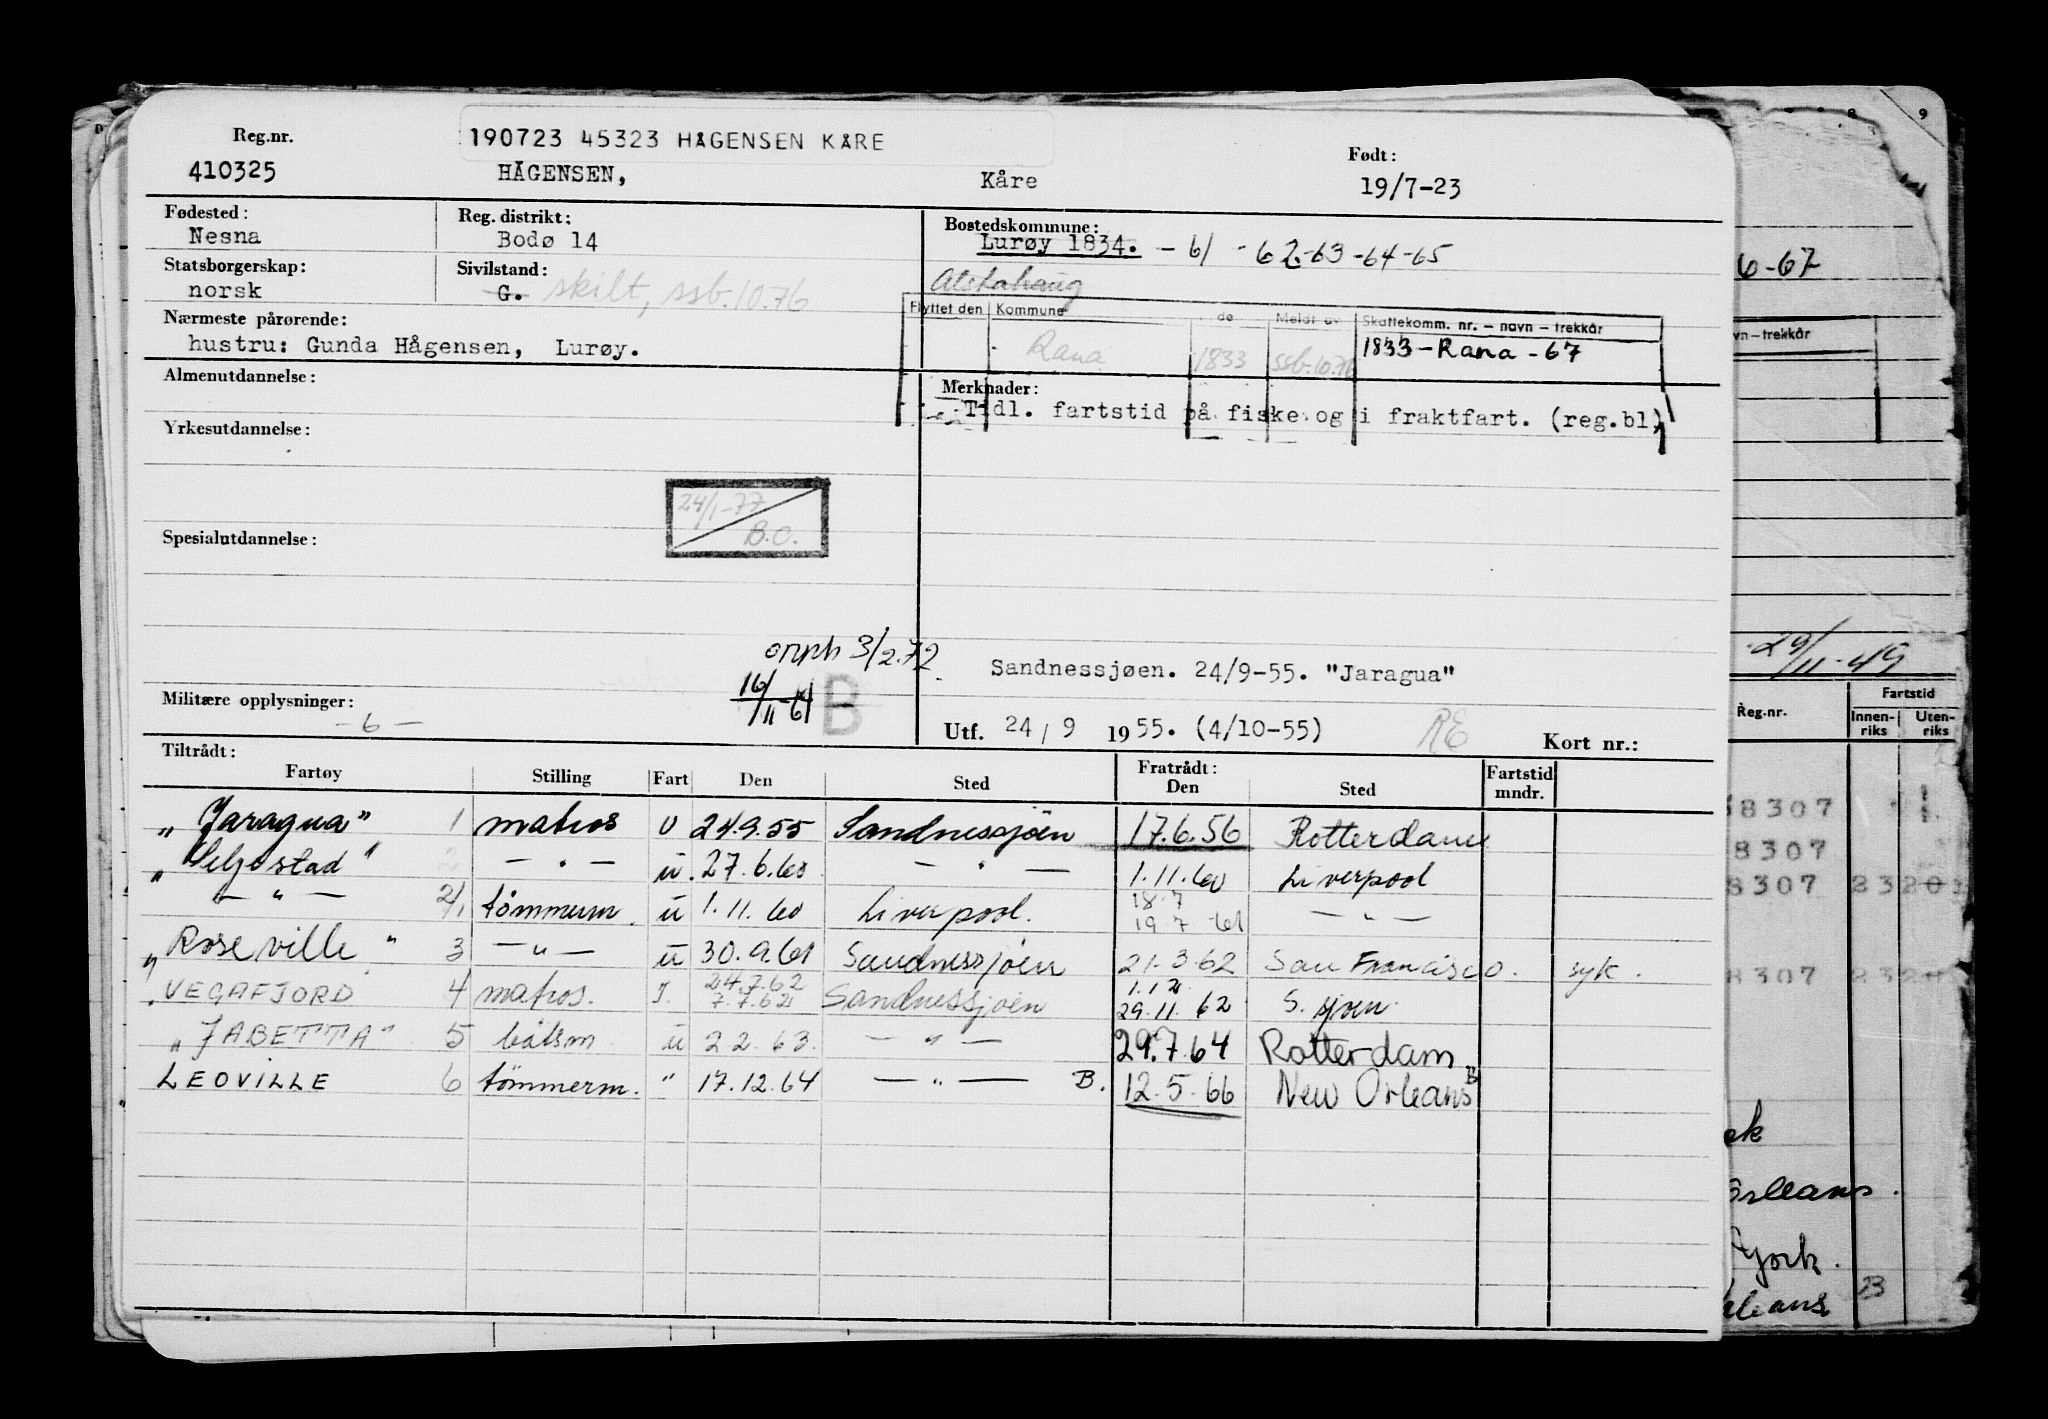 Reg.nr. 190723 45323 HÅGENSEN KÅRE Født:
410325 HÅGENSEN, Kåre 19/7-23
Fødested: Reg. distrikt: Bostedskommune:
Nesna Bodø 14 Lurøy 1834. - 61 - 62-63-64-65
Statsborgerskap: Sivilstand: Alstahaug
norsk G. skilt, ssb. 10.76
Flyttet den Kommune de Meldt av Skattekomm. nr. – navn – trekkår
Nærmeste pårørende: Rana 1833 ssb. 10.76 1833 - Rana - 67
hustru: Gunda Hågensen, Lurøy.
Almenutdannelse: Merknader:
Tidl. fartstid på fiske og i fraktfart. (reg.bl)
Yrkesutdannelse:
24/1-77
B.O.
Spesialutdannelse:
3/2.72
Sandnessjøen. 24/9-55. "Jaragua"
16/11-61 B
Militære opplysninger: - 6 -
Utf. 24/9 1955. (4/10-55) RE Kort nr.:
Tiltrådt: Fratrådt:
Fartøy Stilling Fart Den Sted Den Sted Fartstid mndr.
"Jaragua" 1 matros U 24.9.55 Sandnessjöen 17.6.56 Rotterdam
"Seljestad" 2 — " — u. 27.6.60 — " — 1.11.60 Liverpool
— " — 2/1 tömmerm. u 1.11.60 Liverpool. 18.7 19.7 61 — " —
"Roseville" 3 — " — u 30.9.61 Sandnessjöen 21.3.62 San Francisco. syk.
"VEGAFJORD 4 matros. I. 24.7.62 7.7.62 Sandnessjöen 1.12 29.11.62 S. sjoen
"JABETTA" 5 båtsm u 2 2. 63. — " — 29.7.64 Rotterdam
LEOVILLE 6 tömmerm. " 17.12.64 — " — B. 12.5.66 New Orleans B
8 9
6-67
vn – trekkår
29/11-49
Reg.nr. Fartstid
Innenriks Utenriks
8307
8307
8307 23
8307 23
ek
Orleans.
York.
leans B